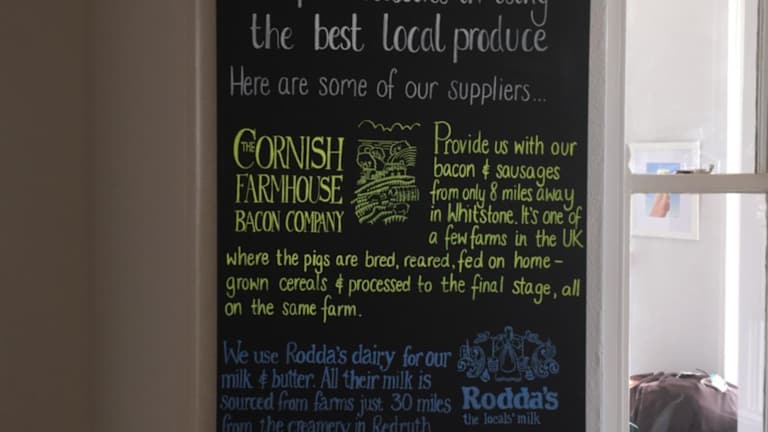 the best local produce
Here are some of our suppliers...
THE CORNISH
FARMHOUSE
BACON COMPANY
Provide us with our
bacon & sausages
from only 8 miles away
in Whitstone. It's one of
a few farms in the UK
where the pigs are bred, reared, fed on home-
grown cereals & processed to the final stage, all
on the same farm.
We use Rodda's dairy for our
milk & butter. All their milk is
sourced from farms just 30 miles
from the creamery in Redruth
Rodda's
the locals' milk